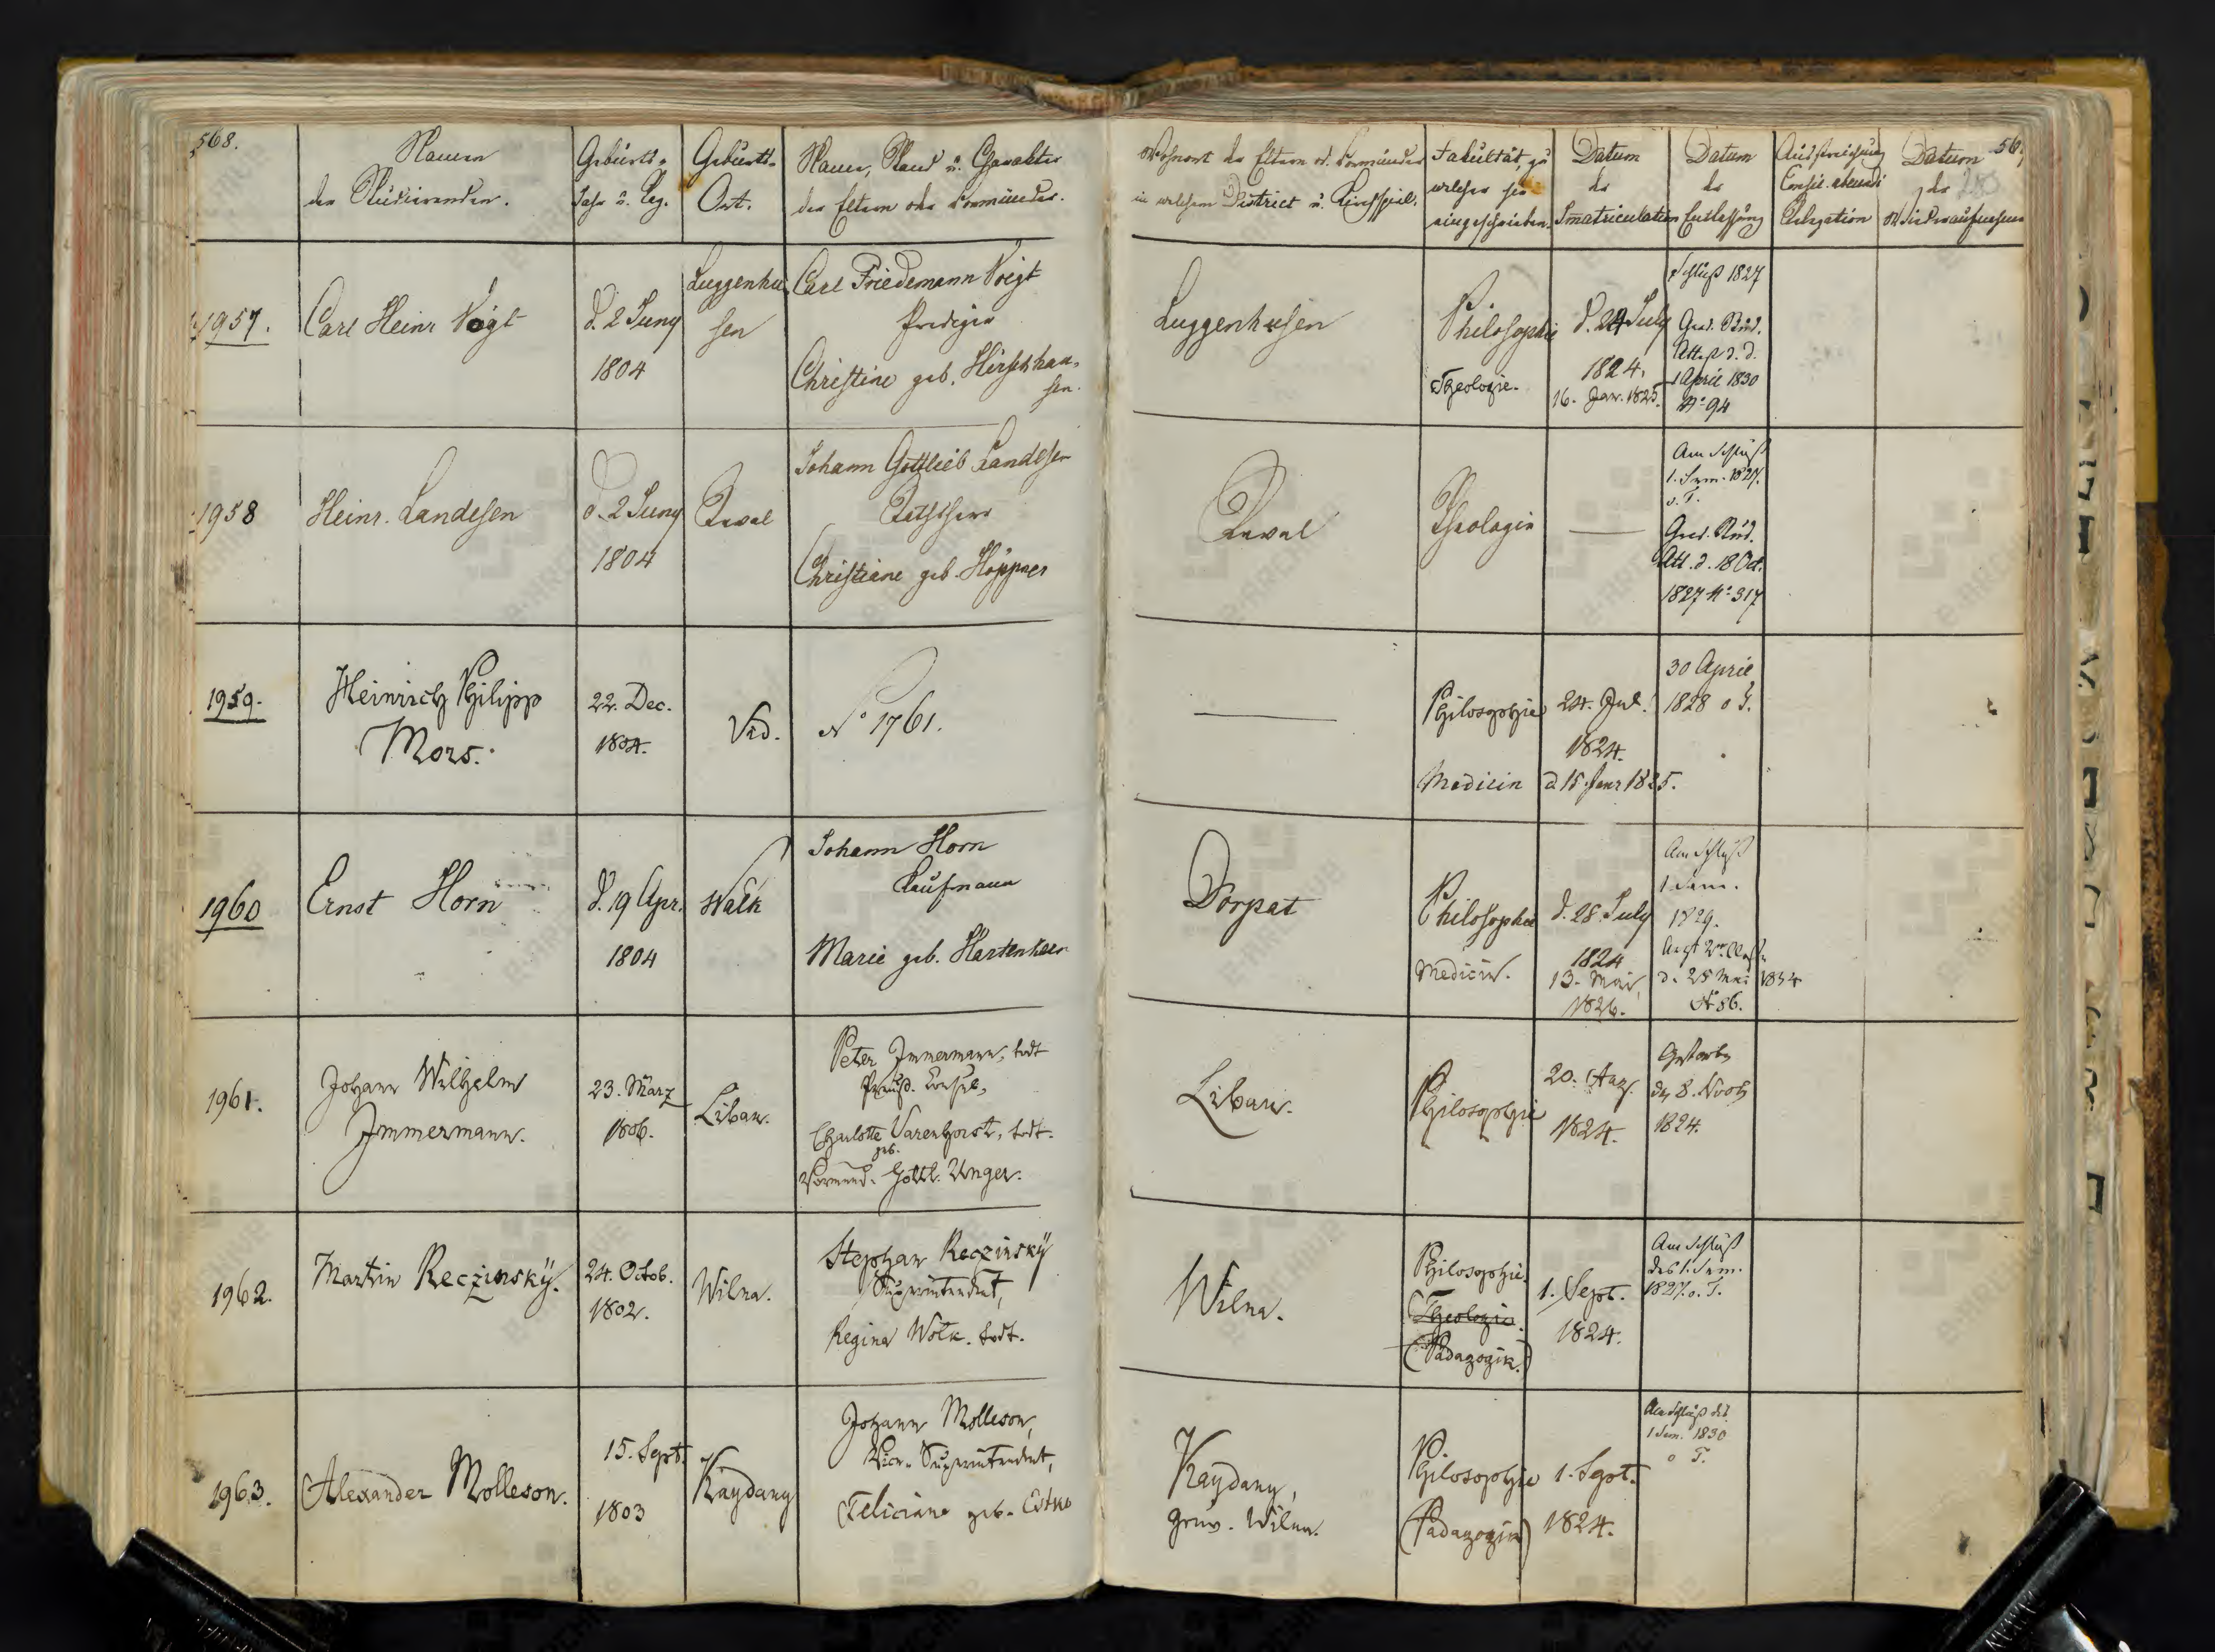 568.
Namen
der Studirenden.
Geburts-
Jahr u. Tag.
Geburts-
Ort.
Name, Stand u. Charakter
der Eltern oder Vormünder.
Wohnort der Eltern od. Vormünder
in welchem District u. Kirchspiel.
Fakultät, zu
welcher sie
eingeschrieben.
Datum
der
Immatriculation
Datum
der
Entlassung
Ausstreichung
Consil. abeundi
Relegation
Datum
der
Wiederaufnahme
56
1957.
Carl Heinr Voigt
d. 2 Juny
1804
Luggenhu
sen
Carl Friedemann Voigt
Prediger
Christine geb. Hirschhau-
sen.
Luggenhusen
Philosophie
Theologie.
d. 24 July
1824.
16. Jan. 1825.
Schluß 1827
Grad. Stud.
Attest d. d.
1 April 1830
N° 94
1958
Heinr. Landesen
d. 2 Juny
1804
Reval
Johann Gottlieb Landesen
Rathsherr
Christiane geb. Höppner
Reval
Theologie
Am Schluß
1. Sem. 1827.
o. T.
Grad. Stud.
Att. d. 18 Oct.
1827 N° 317
1959.
Heinrich Philipp
Mors.
22. Dec.
1804.
Vid.
N° 1761.
Philosophie
Medicin
24. Jul.
1824.
d 15. Janr 1825.
30 April
1828 o T.
1960
Ernst Horn
d. 19 Apr.
1804
Walk
Johann Horn
Kaufmann
Marie geb.
Dorpat
Philosophie
Medicin.
d. 28. July
1824
13. Mai
1826.
Am Schluß
1 Sem.
1829.
Arzt 2r Classe
d. 28 Mai 1834
N 86.
1961.
Johann Wilhelm
Immermann.
23. März
1806.
Libau.
Peter Immermann, todt
Preuß. Consul,
Charlotte geb. Varenhorst, todt.
Vormund. Gottl. Unger.
Libau.
Philosophie
20. Aug.
1824.
Gestorben
den 8. Novb
1824.
1962.
Martin Reczinskÿ.
24. Octob.
1802.
Wilna.
Stephan Reczinskÿ
Superintendent,
Regina Wolk. todt.
Wilna.
Philosophie.
Theologie.
(Pädagogik.)
1. Sept.
1824.
Am Schluß
des 1. Sem.
1827. o. T.
1963.
Alexander Molleson.
15. Sept.
1803
Kaydany
Johann Molleson,
Vice-Superintendent,
Feliciane geb. Estko
Kaydany,
Gouv. Wilna.
Philosophie
(Pädagogik)
1. Sept.
1824.
Am Schluß des
1 Sem. 1830
o T.